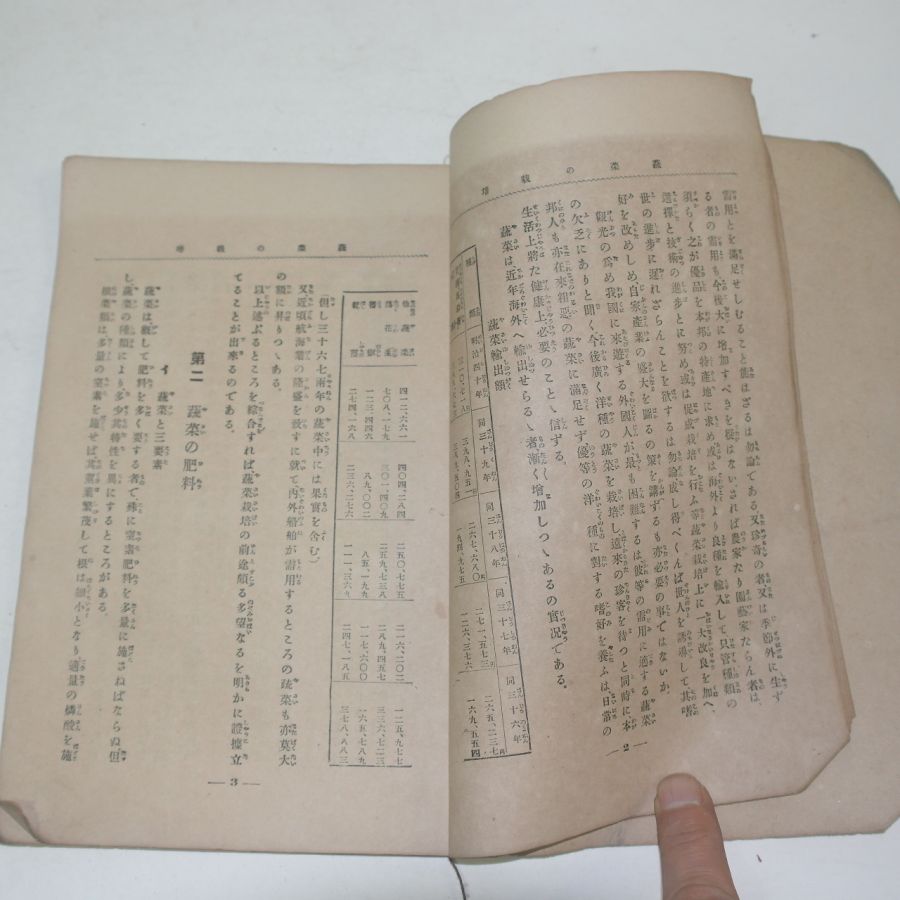 蔬菜の栽培
需用とを滿足せしむること能はざるは勿論である、又珍奇の者又は季節外に生ず
る者の需用も今後次に増加すべきを疑はない、されば農家たり園藝家たらん者は、
須らく之が優品を本邦の特產地に求め或は海外より良種を輸入して只管種類の
選擇と技術の進步とに努め或は促成栽培を行ふ等蔬菜栽培上に一大改良を加へ、
世の進步に遲れざらんことを欲するは勿論成し得べくんば世人を誘導して其嗜
好を改めしめ自家產業の盛大を圖るの策を講ずるも亦必要の事ではないか、
觀光の爲め我國に來遊する外國人が最も困難するは彼等の需用に適する蔬菜
の欠乏にありと聞く、今後廣く洋種の蔬菜を栽培し遠來の珍客を待つと同時に本
邦人も亦在來粗惡の蔬菜に滿足せず、優等の洋種に對する嗜好を養ふは、日常の
生活上將た健康上必要のことゝ信ずる、
蔬菜は、近年海外へ輸出せらるゝ者漸く增加しつゝあるの實況である、
蔬菜輸出額
種類 明治四十年 同三十九年 同三十八年 同三十七年 同三十六年
二六七、六八〇 二七一、五七三 二六五、二三七
一九四、九七五 一二六、三七六 二六九、五五四
—2—
蔬菜の栽培
四一二、六六一 四〇四、二八四 二五〇、七七五 二一六、二〇二 一二五、九七七
七〇八、一七九 三〇一、四〇九 二五九、七三八 二八九、四五七 三三六、七二三
一二三、四四六 八九、〇〇二 八五、一九九 一七一、六〇〇 一六五、七八九
二七四、一六八 二三六、二七六 一一一、三六九 二四七、一八五 三七八、八八三
(但し三十六七兩年の蔬菜中には果實を含む)
又近頃航海業の隆盛を致すに就て內外船舶が需用するところの蔬菜も亦莫大
の額に昇りつゝある、
以上述ぶるところを綜合すれば、蔬菜栽培の前途頗る多望なるを明かに證據立
てることが出來るのである。
第二 蔬菜の肥料
イ 蔬菜と三要素
蔬菜は槪して肥料を多く要する者で、殊に窒素肥料を多量に施さねばならぬ但
し蔬菜の種類により多少其特性を異にするところがある、
根菜類は多量の窒素を施せば其莖葉繁茂して根は細小となり適量の燐酸を施
—3—